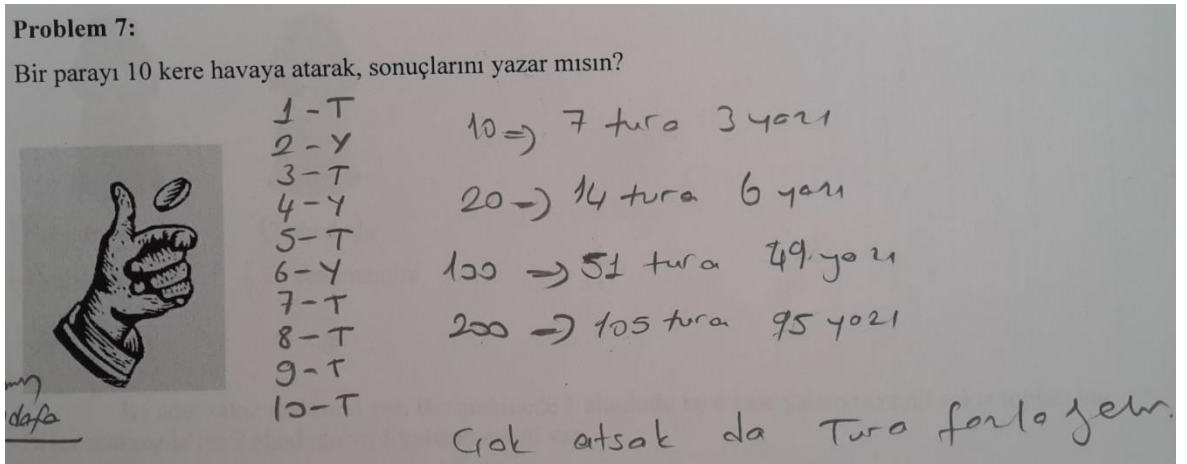 Problem 7:
Bir parayı 10 kere havaya atarak, sonuçlarını yazar mısın?
1-T
2-Y
3-T
4-Y
5-T
6-Y
7-T
8-T
9-T
10-T
10⇒ 7 tura 3 yazı
20⇒ 14 tura 6 yazı
100 ⇒ 51 tura 49 yazı
200 ⇒ 105 tura 95 yazı
Çok atsak da Tura fazla gelir.
dafa